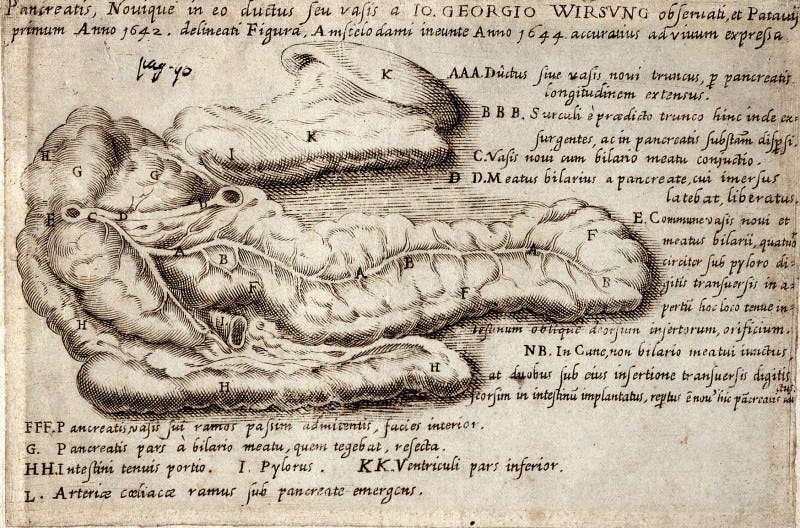 Pancreatis, Novique in eo ductus seu vasis a IO. GEORGIO WIRSVNG observati, et Patavij
primum Anno 1642. delineati Figura, Amstelodami ineunte Anno 1644 accuratius ad vivum expressa
pag. 90
AAA. Ductus sive vasis novi truncus, p pancreatis
longitudinem extensus.
BBB. Surculi è prædicto trunco hinc inde ex-
surgentes, ac in pancreatis substam dispsi.
C. Vasis novi cum bilario meatu conjuctio.
D D. Meatus bilarius a pancreate, cui imersus
latebat, liberatus.
E. Commune vasis novi et
meatus bilarii, quatuor
circiter sub pyloro di-
gitis transversis in a-
pertu hoc loco tenue in-
testinum oblique deorsum insertorum, orificium.
NB. In Cane, non bilario meatui iunctus,
at duobus sub eius insertione transversis digitis
seorsim in intestinu implantatus, reptus è nov' hic pacreatis
FFF. Pancreatis, vasis sui ramos passim admittentis, facies interior.
G. Pancreatis pars à bilario meatu, quem tegebat, resecta.
HH. Intestini tenuis portio. I. Pylorus. KK. Ventriculi pars inferior.
L. Arteriæ cœliacæ ramus sub pancreate emergens.
K
K
I
H
G
G
E
C
D
D
A
B
A
B
A
F
B
F
F
L
H
H
H